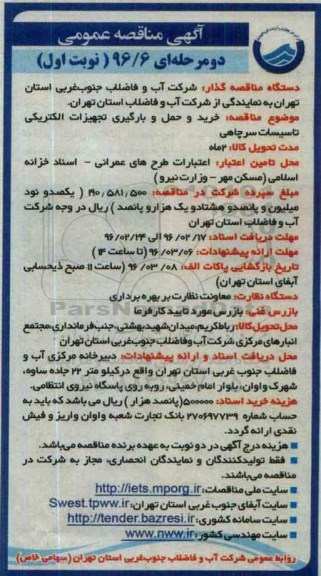 آگهی مناقصه عمومی
دومرحله‌ای ۹۶/۶ ( نوبت اول)
دستگاه مناقصه گذار: شرکت آب و فاضلاب جنوب‌غربی استان
تهران به نمایندگی از شرکت آب و فاضلاب استان تهران.
موضوع مناقصه: خرید و حمل و بارگیری تجهیزات الکتریکی
تاسیسات سرچاهی
مدت تحویل کالا: ۲ماه
محل تامین اعتبار: اعتبارات طرح های عمرانی - اسناد خزانه
اسلامی (مسکن مهر - وزارت نیرو )
مبلغ سپرده شرکت در مناقصه: ۱۹۰/۵۸۱/۵۰۰ ( یکصدو نود
میلیون و پانصدو هشتادو یک هزارو پانصد ) ریال در وجه شرکت
آب و فاضلاب استان تهران
مهلت دریافت اسناد: ۹۶/۰۲/۱۷ الی ۹۶/۰۲/۲۴
مهلت ارائه پیشنهادات: ۹۶/۰۳/۰۶ (تا ساعت ۱۴ )
تاریخ بازگشایی پاکات الف: ۹۶/۰۳/۰۸ (ساعت ۱۱ صبح ذیحسابی
آبفای استان تهران)
دستگاه نظارت: معاونت نظارت بر بهره برداری
بازرس فنی: بازرس مورد تایید کارفرما
محل تحویل کالا: رباط‌کریم،میدان‌شهیدبهشتی،جنب‌فرمانداری،مجتمع
انبارهای مرکزی شرکت آب وفاضلاب جنوب‌غربی استان تهران
محل دریافت اسناد و ارائه پیشنهادات: دبیرخانه مرکزی آب و
فاضلاب جنوب غربی استان تهران واقع درکیلو متر ۲۲ جاده ساوه،
شهرک واوان، بلوار امام خمینی، روبه روی پاسگاه نیروی انتظامی.
هزینه خرید اسناد: ۵۰۰۰۰۰(پانصد هزار ) ریال می باشد که باید به
حساب شماره ۲۷۰۶۹۷۷۳۹ بانک تجارت شعبه واوان واریز و فیش
نقدی ارائه گردد.
■ هزینه درج آگهی در دو نوبت به عهده برنده مناقصه می‌باشد.
■ فقط تولیدکنندگان و نمایندگان انحصاری، مجاز به شرکت در
مناقصه می‌باشند.
■ سایت ملی مناقصات: http://iets.mporg.ir
■ سایت آبفای جنوب غربی استان تهران: Swest.tpww.ir
■ سایت سامانه کشوری: http://tender.bazresi.ir
■ سایت مهندسی کشور: www.nww.ir
روابط عمومی شرکت آب و فاضلاب جنوب‌غربی استان تهران (سهامی خاص)